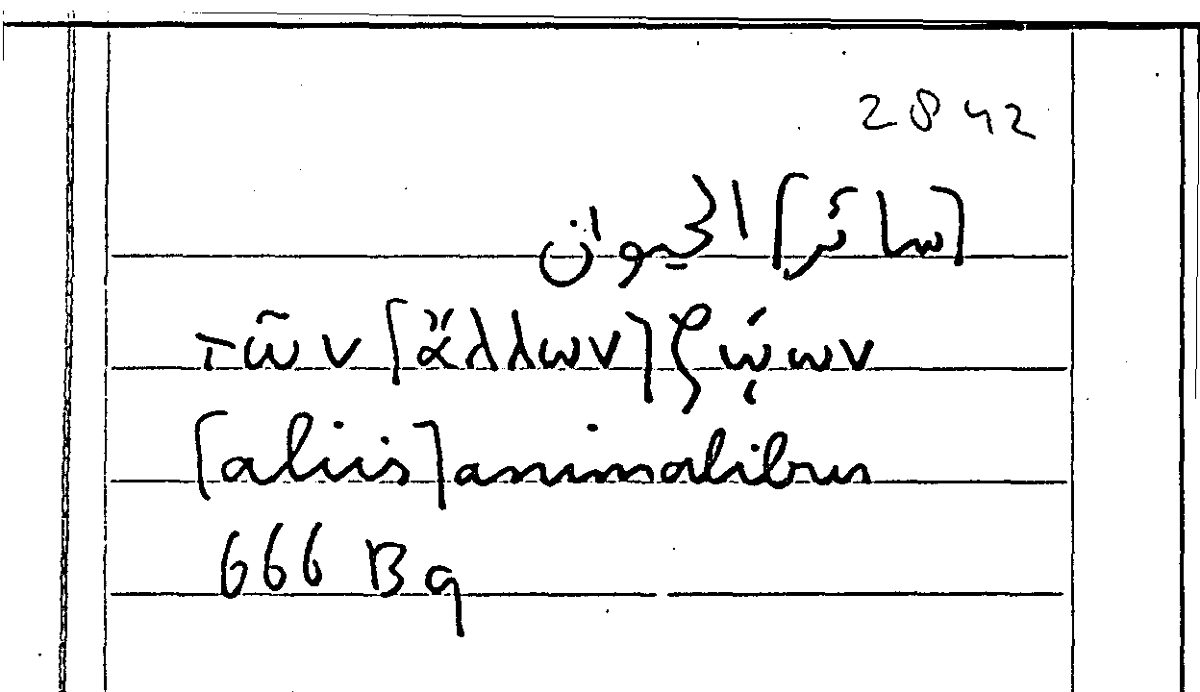 2842
[سائر] الحيوان
τῶν [ἄλλων] ζῴων
[aliis] animalibus
666 B 9